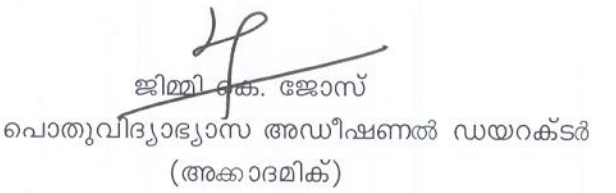 ജിമ്മി കെ. ജോസ്
പൊതുവിദ്യാഭ്യാസ അഡീഷണൽ ഡയറക്ടർ
(അക്കാദമിക്)